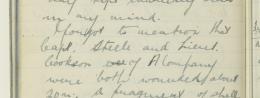 in my mind.
I forgot to mention that
Capt. Steele and Lieut.
Cookson of A Company
were both wounded about
a fragment of shell